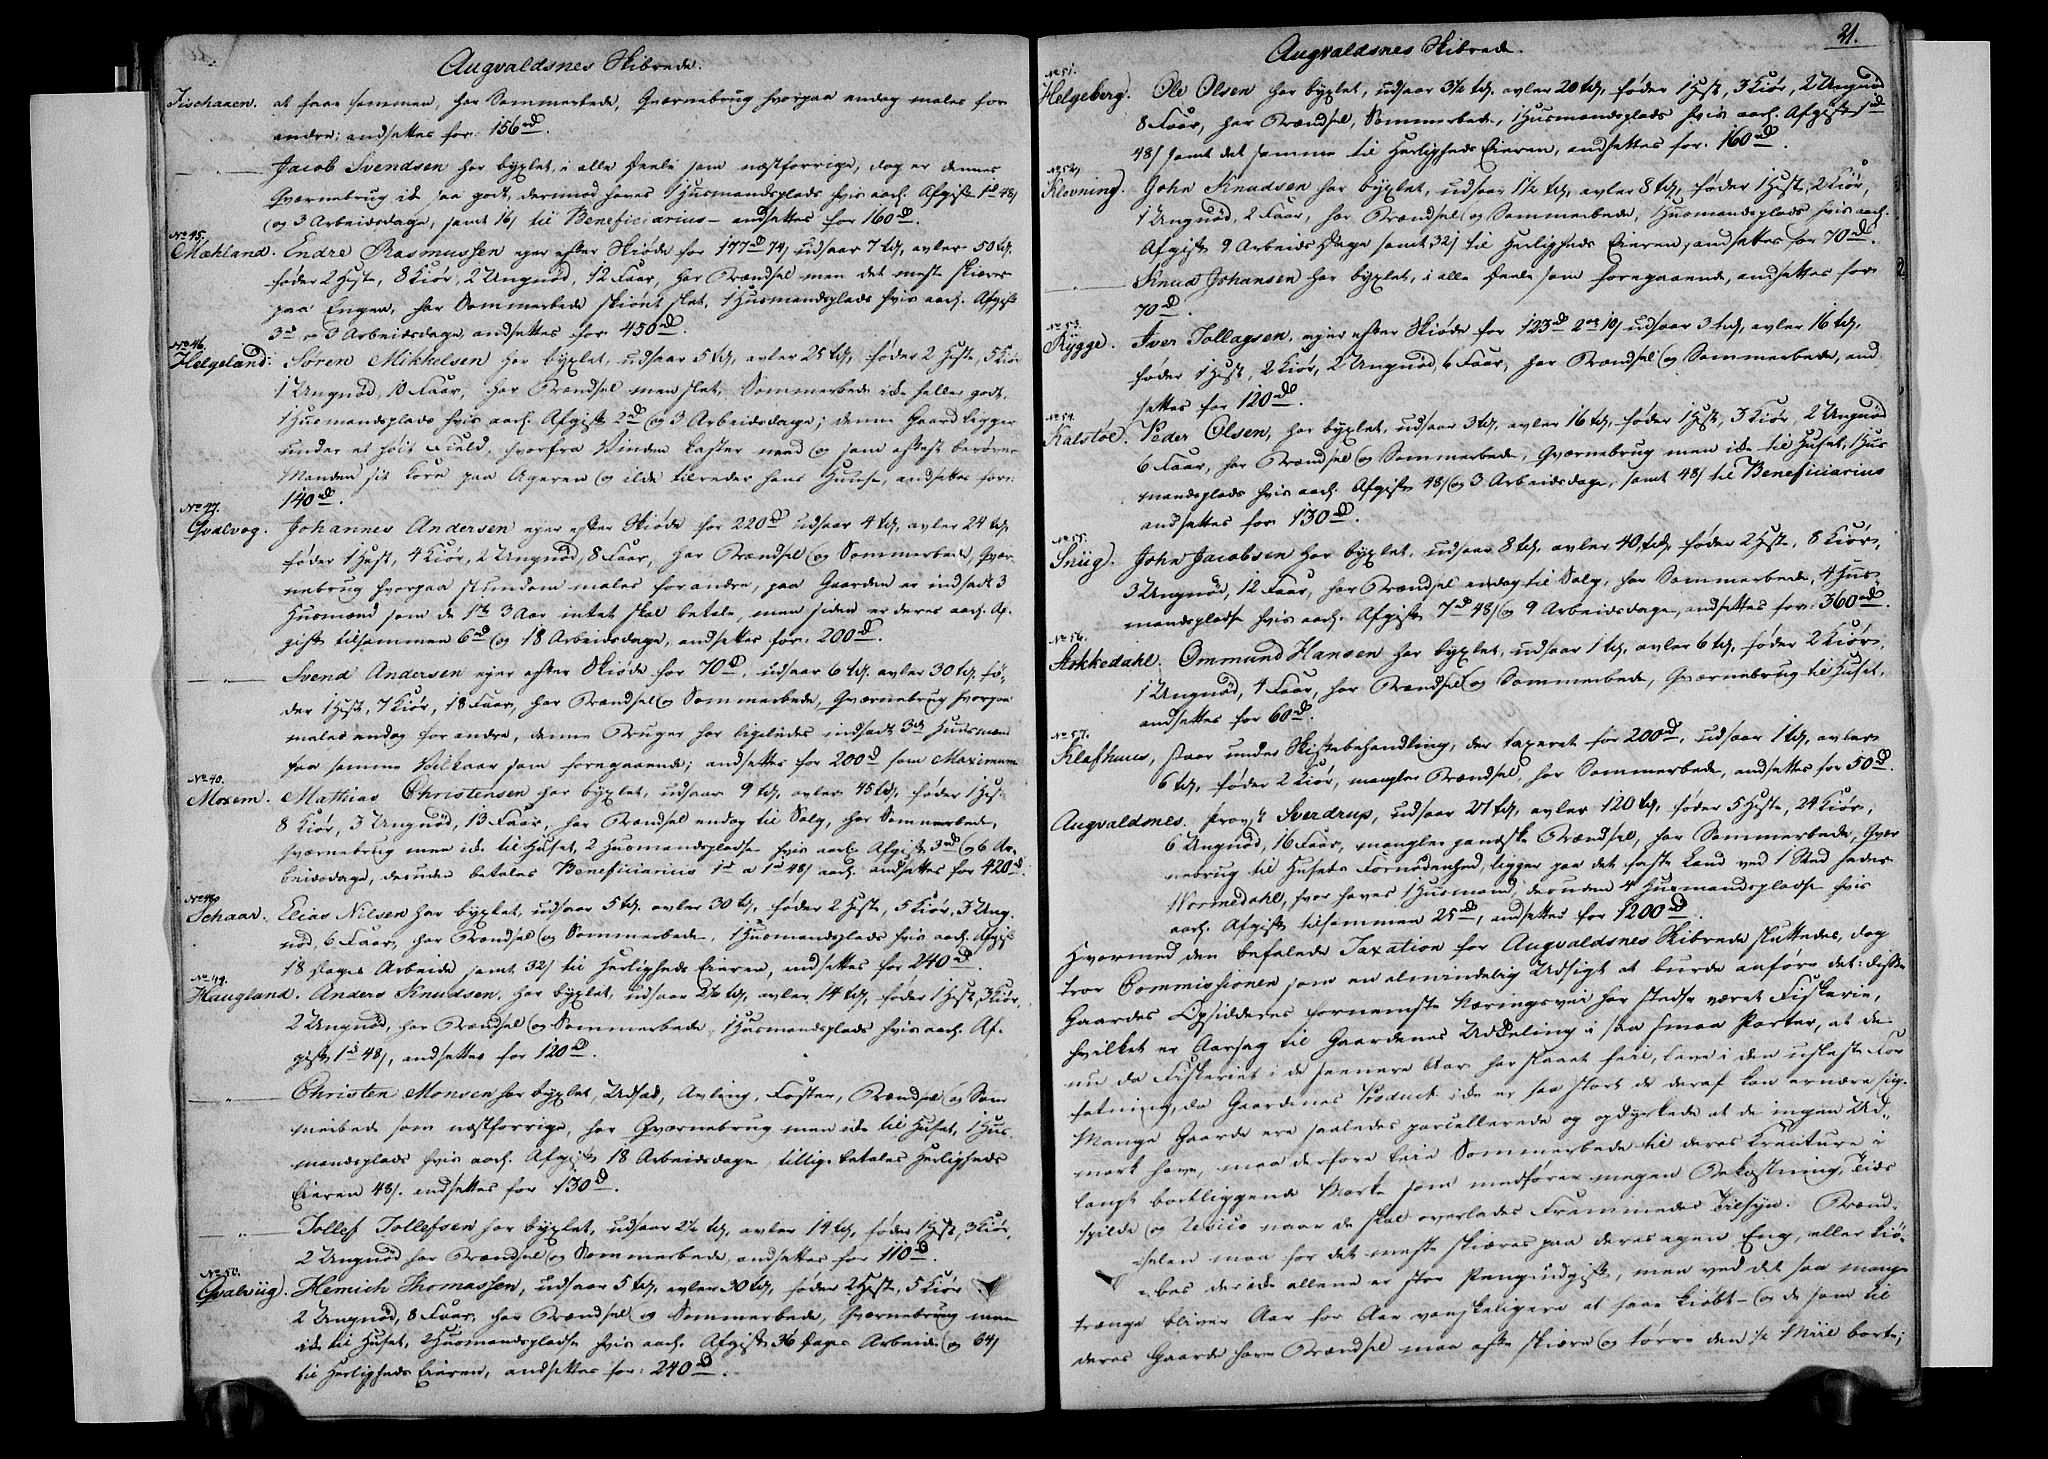 Augvaldsnes Skibrede.
Fischaaen. at faae sammen, har Sommerbede, Qværnebrug hvorpaa endog males for
andre; andsettes for: 156 rd.
Jacob Svendsen har byxlet, i alle Deele som næstforrige, dog er dennes
Qværnebrug ik saa godt, derimod haves 1 Huusmandsplads hvis aarl. Afgift 1 rd 48 s
og 3 Arbeidsdage, samt 16 s til Beneficiarius - andsettes for 160 rd.
No 45.
Mæhland. Endre Rasmussen eyer efter Skiøde for 177 rd 74 s, udsaar 7 td, avler 50 td,
føder 2 Heste, 8 Kiør, 2 Ungnød, 12 Faar, har Brændsel men det meste skiæres
paa Engen, har Sommerbede skiønt slet, 1 Huusmandsplads hvis aarl. Afgift
3 rd og 3 Arbeidsdage, andsettes for 450 rd.
No 46.
Helgeland: Søren Mikkelsen har byxlet, udsaar 5 td, avler 25 td, føder 2 Heste, 5 Kiør
1 Ungnød, 10 Faar, har Brændsel men slet, Sommerbede ikke heller godt,
1 Huusmandsplads hvis aarl. Afgift 2 rd og 3 Arbeidsdage; denne Gaard ligger
under et høit Field, hvorfra Vinden kaster need og som oftest berøver
Manden sit Korn paa Ageren og ilde tilreder hans Huuse, andsettes for:
140 rd.
No 47.
Qvalvog. Johannes Andersen eyer efter Skiøde for 220 rd udsaar 4 td, avler 24 td,
føder 1 Hest, 4 Kiør, 2 Ungnød, 8 Faar, har Brændsel og Sommerbede, Qvær-
nebrug hvorpaa stundom males for andre, paa Gaarden er indsadt 3
Huusmænd som de 1ste 3 Aar intet skal betale, men siden er deres aarl. Af-
gift tilsammen 6 rd og 18 Arbeidsdage, andsettes for: 200 rd.
Svend Andersen eyer efter Skiøde for 70 rd, udsaar 6 td, avler 30 td, fø-
der 1 Hest, 7 Kiør, 18 Faar, har Brændsel og Sommerbede, Qværnebrug hvorpaa
males endog for andre, denne Bruger har ligeledes indsadt 3de Huusmænd
paa samme Vilkaar som foregaaende; andsettes for 200 rd som Maximum
No 40.
Moxem. Mathias Christensen har byxlet, udsaar 9 td, avler 45 td, føder 1 Hest
8 Kiør, 3 Ungnød, 13 Faar, har Brændsel endog til Salg, har Sommerbede,
Qværnebrug men ik til Huset, 2 Huusmandspladse hvis aarl. Afgift 3 rd og 6 Ar-
beidsdage, desuden betales Beneficiarius 1 rd a 1 rd 48 s aarl. andsettes for 420 rd.
Schaar. Elias Nilsen har byxlet, udsaar 5 td, avler 30 td, føder 2 Heste, 5 Kiør, 3 Ung-
nød, 6 Faar, har Brændsel og Sommerbede, 1 Huusmandsplads hvis aarl. Afgift
18 Dages Arbeide samt 32 s til Herligheds Eieren, andsettes for 240 rd.
No 49.
Haugland. Anders Knudsen, har byxlet, udsaar 2½ td, avler 14 td, føder 1 Hest, 3 Kiør,
2 Ungnød, har Brændsel og Sommerbede, 1 Huusmandsplads hvis aarl. Af-
gift 1 rd 48 s, andsettes for 120 rd.
Christen Monsen har byxlet, Udsæd, Avling, Foster, Brændsel og Som-
merbede som næstforrige, har Qværnebrug men ik til Huset, 1 Huus-
mandsplads hvis aarl. Afgift 18 Arbeidsdage, tillige betales Herligheds
Eieren 48 s. andsettes for 130 rd.
Tollef Tollefsen har byxlet, udsaar 2½ td, avler 14 td, føder 1 Hest, 3 Kiør,
2 Ungnød har Brændsel og Sommerbede, andsettes for 110 rd.
No 50.
Qvalviig. Hemich Thomassen, udsaar 5 td, avler 30 td, føder 2 Heste, 5 Kiør
2 Ungnød, 8 Faar, har Brændsel og Sommerbede, Qværnebrug men
ik til Huset, 2 Huusmandspladse hvis aarl. Afgift 36 Dages Arbeide og 64 s
til Herligheds Eieren, andsettes for: 240 rd.
Augvaldsnes Skibrede.
21.
No 51.
Helgeberg. Ole Olsen har byxlet, udsaar 3½ td, avler 20 td, føder 1 Hest, 3 Kiør, 2 Ungnød
8 Faar, har Brændsel, Sommerbede, 1 Huusmandsplads hvis aarl. Afgift 1 rd
48 s samt det samme til Herligheds Eieren, andsettes for: 160 rd.
No 52.
Kløvning. John Knudsen har byxlet, udsaar 1½ td, avler 8 td, føder 1 Hest, 2 Kiør,
1 Ungnød, 2 Faar, har Brændsel og Sommerbede, 1 Huusmandsplads hvis aarl.
Afgift 9 Arbeids Dage samt 32 s til Herligheds Eieren, andsettes for 70 rd.
Knud Johansen har byxlet, i alle Deele som foregaaende, andsettes for
70 rd.
No 53.
Rygge. Iver Tollagsen, eyer efter Skiøde for 123 rd 2 ort 19 s udsaar 3 td, avler 16 td,
føder 1 Hest, 2 Kiør, 2 Ungnød, 6 Faar, har Brændsel og Sommerbede, and-
settes for 120 rd.
No 54.
Kalstøe. Peder Olsen, har byxlet, udsaar 3 td, avler 16 td, føder 1 Hest, 3 Kiør, 2 Ungnød
6 Faar, har Brændsel og Sommerbede, Qværnebrug men ik til Huset, 1 Huus-
mandsplads hvis aarl. Afgift 48 s og 3 Arbeidsdage, samt 48 s til Beneficiarius
andsettes for 130 rd.
No 55.
Sniig. John Jacobsen har byxlet, udsaar 8 td, avler 40 td, føder 2 Heste, 8 Kiør,
3 Ungnød, 12 Faar, har Brændsel endog til Salg, har Sommerbede, 4 Huus-
mandspladse hvis aarl. Afgift 7 rd 48 s og 9 Arbeidsdage, andsettes for: 360 rd.
No 56.
Stokkedahl. Ommund Hansen har byxlet, udsaar 1 td, avler 6 td, føder 2 Kiør,
1 Ungnød, 4 Faar, har Brændsel og Sommerbede, Qværnebrug til Huset,
andsettes for 60 rd.
No 57.
Klafhuus, staar under Skiftebehandling, der taxeret for 200 rd, udsaar 1 td, avler
6 td, føder 2 Kiør, mangler Brændsel, har Sommerbede, andsettes for 50 rd.
Augvaldsnes. Provst Sverdrup, udsaar 21 td, avler 120 td, føder 5 Heste, 24 Kiør,
6 Ungnød, 16 Faar, mangler gandske Brændsel, har Sommerbede, Qvær-
nebrug til Husets Fornødenhed, ligger paa det faste Land ved 1 Sted heder
Wormedahl, hvor haves 1 Huusmand, desuden 4 Huusmandspladse hvis
aarl. Afgift tilsammen 25 rd, andsettes for 1200 rd.
Hvormed den befalede Taxation for Augvaldsnes Skibrede sluttedes, dog
troer Commissionen som en almindelig Udsigt at burde anføre det: disse
Gaardes Opsidderes fornemste Næringsvei har stedse været Fiskerie,
hvilket er Aarsag til Gaardenes Uddeling i saa smaa Parter, at de
nu da Fiskeriet i de seenere Aar har slaaet feil, leve i den usleste For-
fatning, da Gaardenes Product ikke er saa stort de deraf kan ernære sig.
Mange Gaarde ere saaledes parcellerede og opdyrkede at de ingen Ud-
mark have, maa derfore leie Sommerbede til deres Creature i
langt bortliggende Marke som medfører megen Bekostning, Tids
Spilde og Resico naar de skal overlades Fremmedes Tilsyn. Brænd-
selen maa for det meste skiæres paa deres egen Eng, eller kiø-
bes der ikke allene er stor Pengeudgift, men ved det saa mange
trænge bliver Aar for Aar vanskeligere at faae kiøbt - og de som til
deres Gaarde have Brændsel maa ofte skiære og tørre den ½ Miil borte;